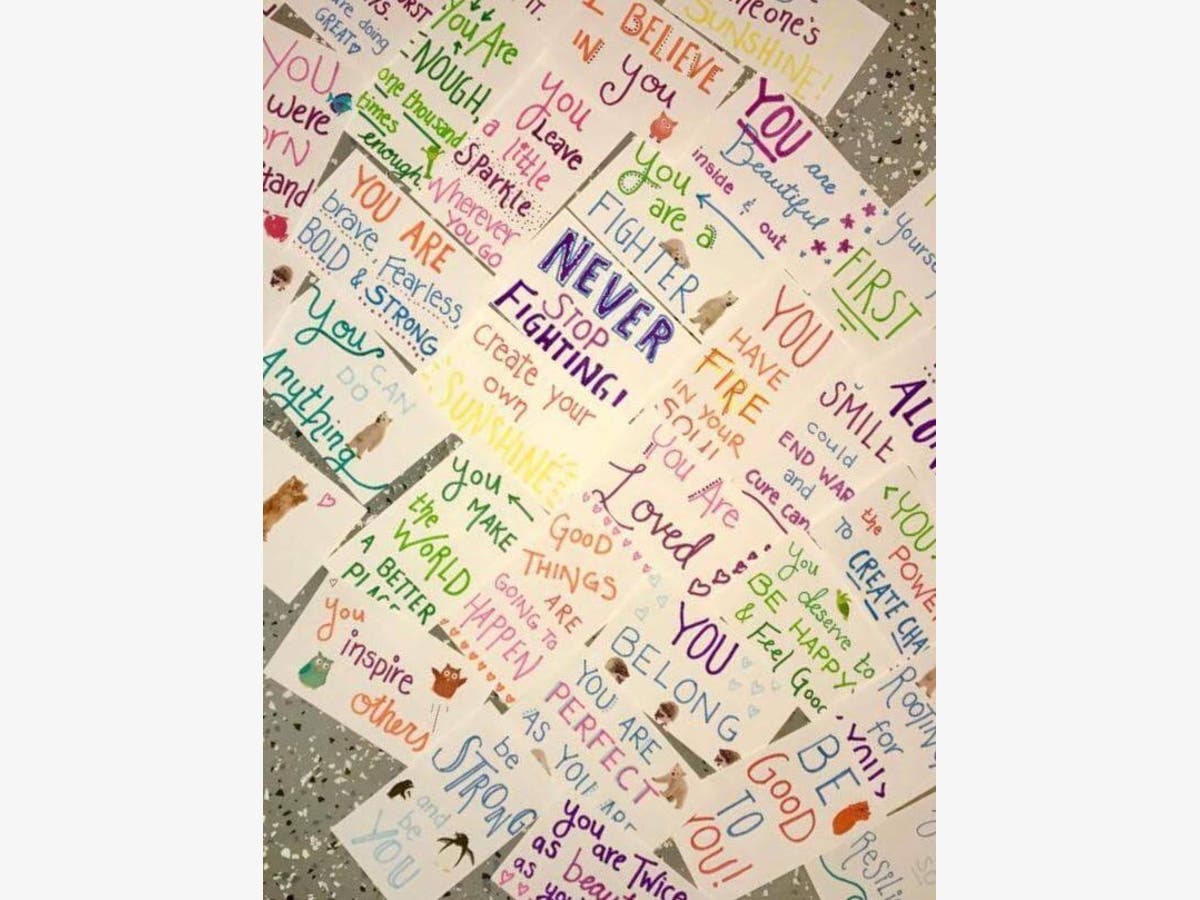 are doing
GREAT
You Are
ENOUGH,
one thousand
times
enough.
I BELIEVE
IN you
someone's
SUNSHINE!
YOU
were
stand
you
Leave
a little
Sparkle
Wherever
YOU GO
YOU are
Beautiful
inside & out
You
are a
FIGHTER
FIRST
YOU ARE
brave, Fearless,
BOLD & STRONG
NEVER
STOP
FIGHTING!
YOU
HAVE
FIRE
IN YOUR
SOUL
You CAN
DO
Anything
create your
own
SUNSHINE
SMILE
could
END WAR
and
cure
You Are
Loved
you
MAKE
the
WORLD
A BETTER
PLACE
GOOD
THINGS
ARE
GOING TO
HAPPEN
YOU
the POWER
TO
CREATE
you
deserve to
BE HAPPY
& Feel Good
YOU
BELONG
you
inspire
others
YOU ARE
PERFECT
AS YOU
ROOTING
for
YOU
BE
GOOD
TO
YOU!
be
STRONG
and
be
YOU
you
are Twice
as
as